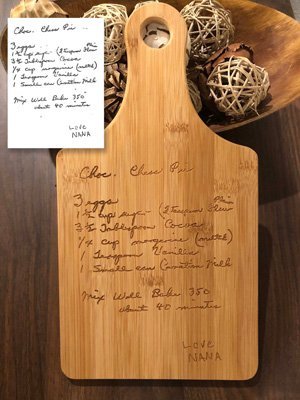 Choc. Chess Pie
3 eggs
1 ½ cup sugar (2 teaspoon Plain Flour
3 ½ Tablespoon Cocoa
¼ cup margarine (melted)
1 Teaspoon Vanilla
1 Small can Carnation Milk
Mix Well Bake 350°
about 40 minutes
LOVE
NANA
Choc. Chess Pie
3 eggs
1 ½ cup sugar (2 teaspoon Plain Flour
3 ½ Tablespoon Cocoa
¼ cup margarine (melted)
1 Teaspoon Vanilla
1 Small can Carnation Milk
Mix Well Bake 350
about 40 minutes
LOVE
NANA